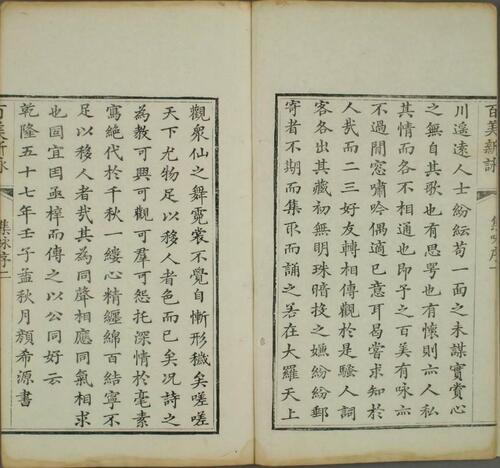 百美新詠
川遥遠人士紛紜苟一面之未謀實賞心
之無自其歌也有思勞也有懷則亦人私
其情而各不相通也即予之百美有咏亦
不過閒窓嘯吟偶適己意耳曷嘗求知於
人哉而二三好友轉相傳觀於是騷人詞
客各出其藏初無明珠暗投之嫌紛紛郵
寄者不期而集取而誦之若在大羅天上
觀衆仙之舞霓裳不覺自慚形穢矣嗟嗟
天下尤物足以移人者色而已矣况詩之
為教可興可觀可羣可怨托深情於毫素
寫絶代於千秋一縷心精纏綿百結寧不
足以移人者哉其為同聲相應同氣相求
也固宜因亟梓而傳之以公同好云
乾隆五十七年壬子孟秋月顏希源書
百美新詠 集咏序 二